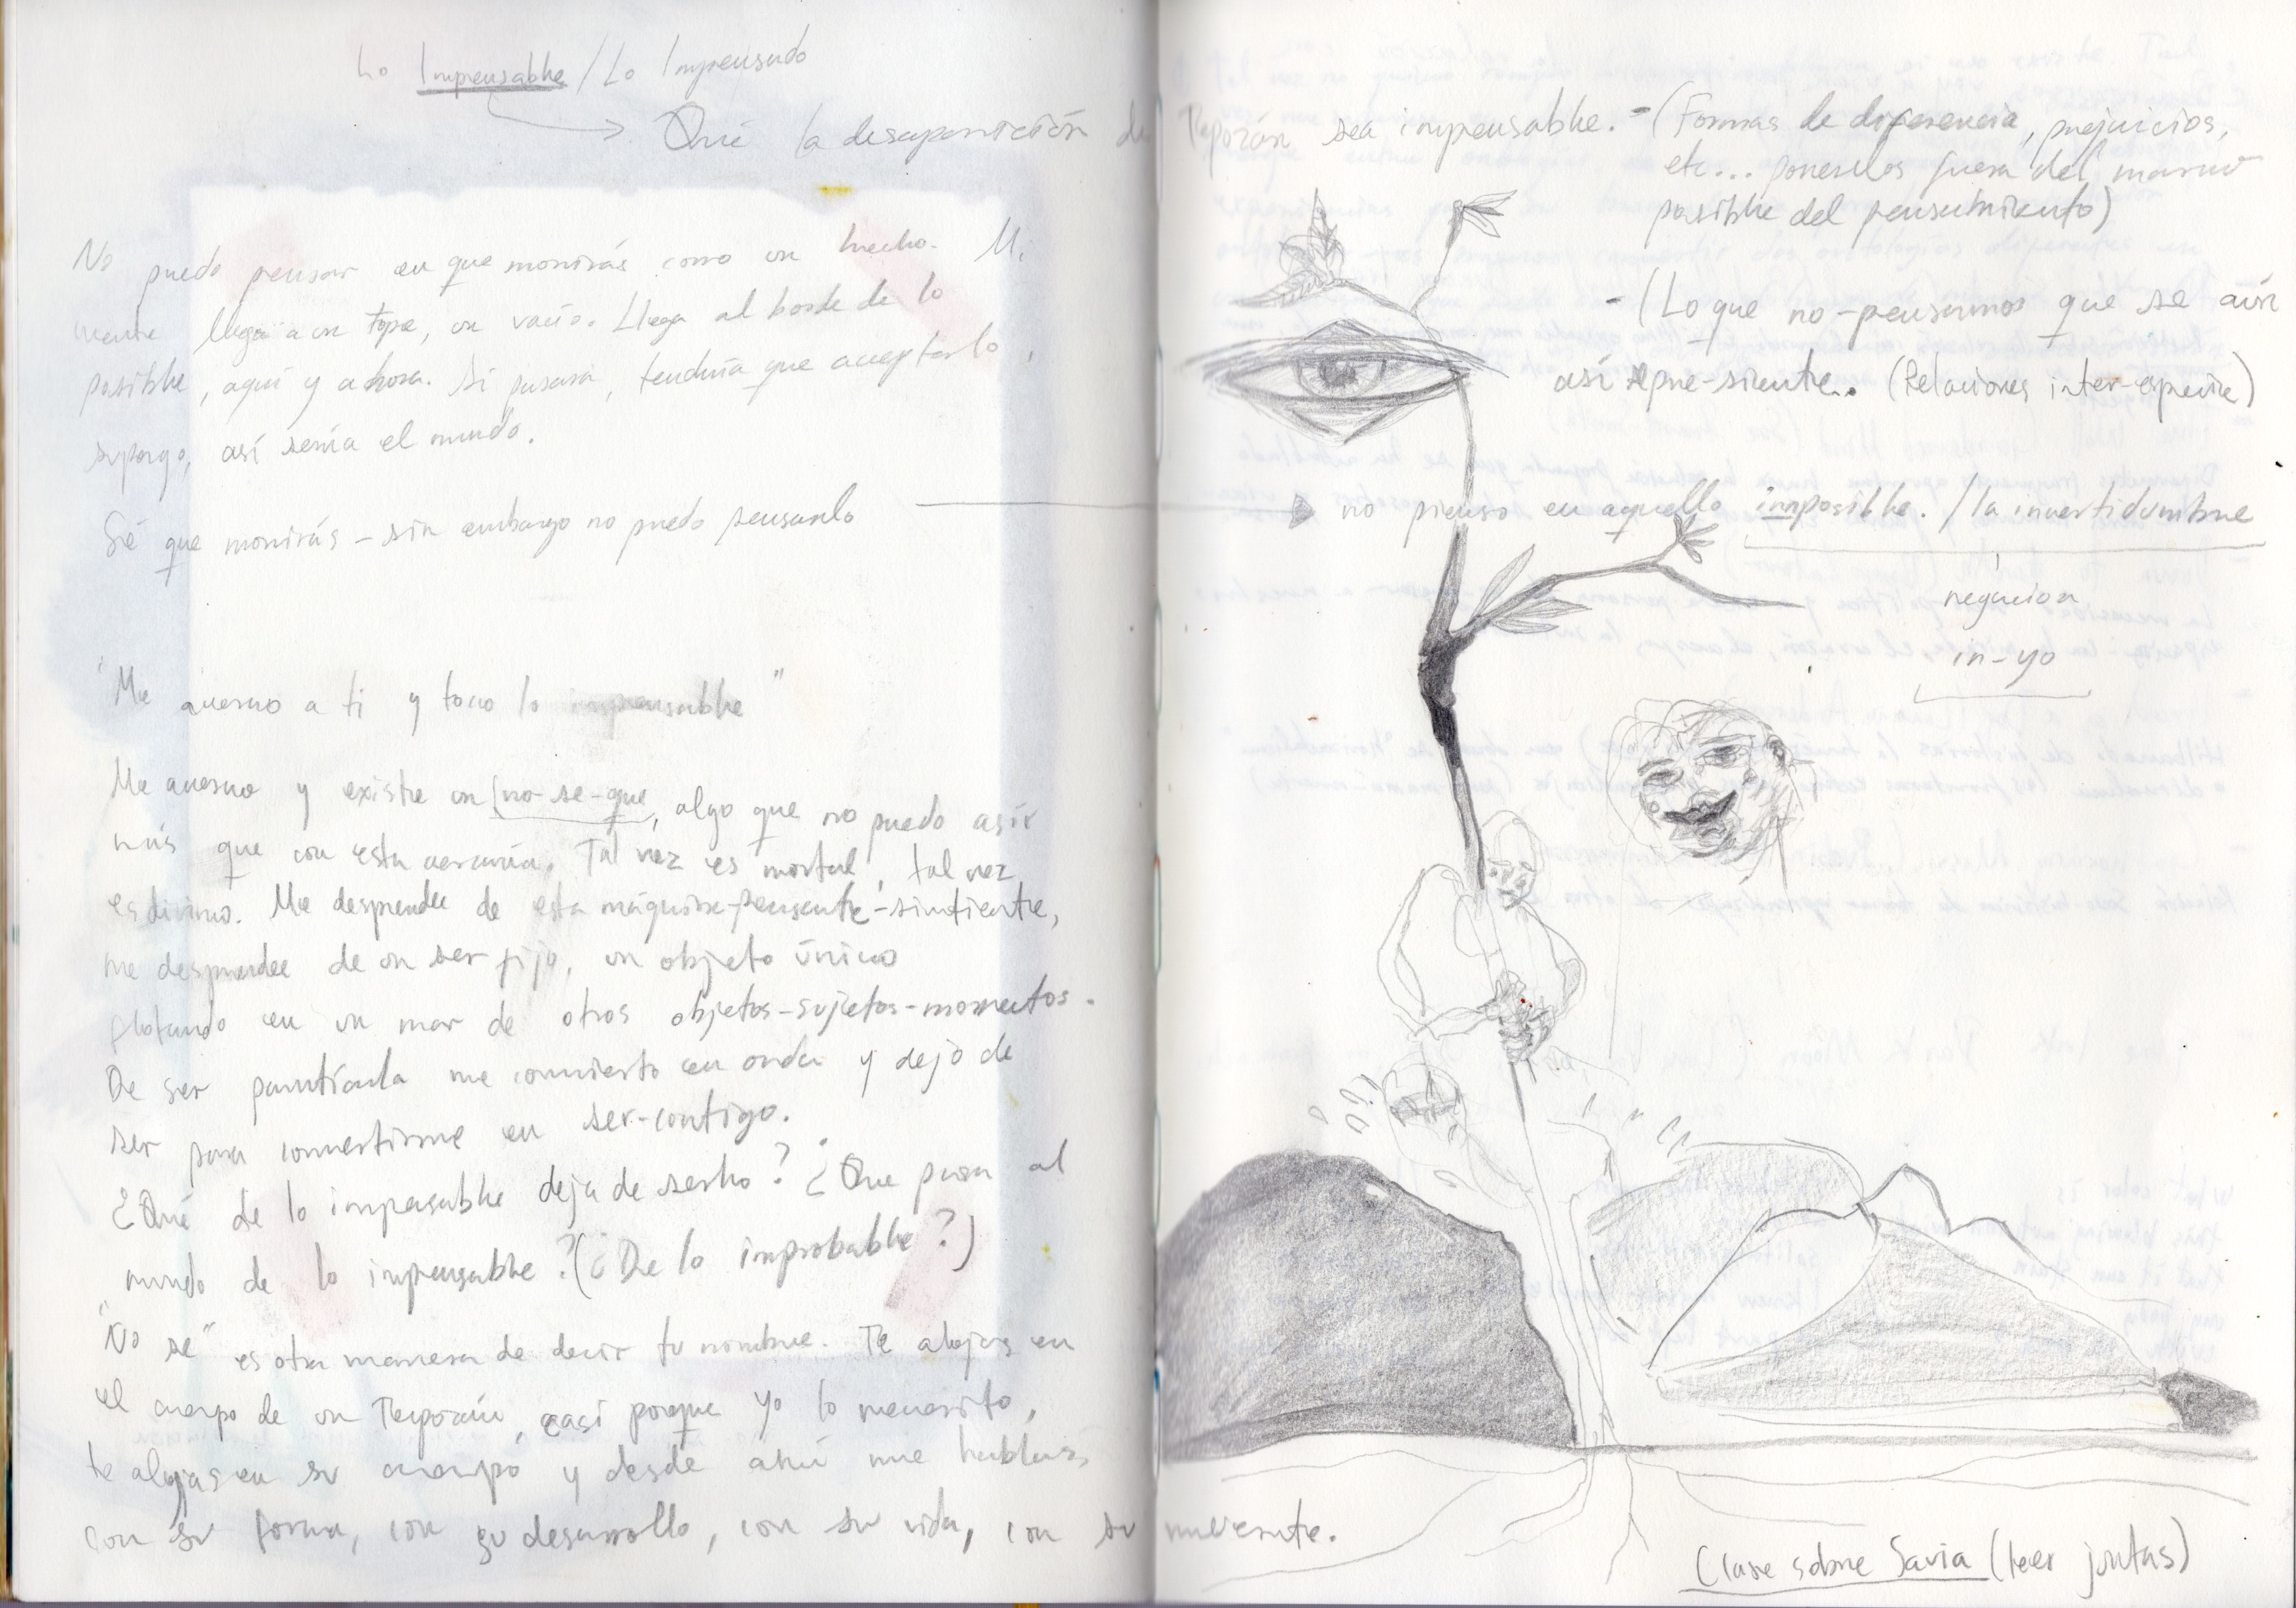 Lo Impensable / Lo Impensado
Qué la desaparición de Tepozán sea impensable. - (Formas de diferencia, prejuicios,
etc... ponerlos fuera del marco
posible del pensamiento)
No puedo pensar en que morirás como un hecho. Mi
mente llega a un tope, un vacío. Llega al borde de lo
posible, aquí y ahora. Si pasara, tendría que aceptarlo,
supongo, así sería el mundo.
Sé que morirás - sin embargo no puedo pensarlo
"Me acerco a ti y toco lo impensable"
Me acerco y existe un no-se-que, algo que no puedo asir
más que con esta cercanía. Tal vez es mortal, tal vez
es divino. Me desprende de esta máquina-pensante-sintiente,
me desprende de un ser fijo, un objeto único
flotando en un mar de otros objetos-sujetos-momentos.
De ser partícula me convierto en onda y dejo de
ser para convertirme en ser-contigo.
¿Qué de lo impensable deja de serlo? ¿Que pasa al
mundo de lo impensable? (¿De lo improbable?)
"No sé" es otra manera de decir tu nombre. Te alojas en
el cuerpo de un Tepozán, casi porque yo lo necesito,
te alojas en su cuerpo y desde ahí me hablas,
con su forma, con su desarrollo, con su vida, con su muerte.
- (Lo que no-pensamos que se aún
así se pre-siente... (Relaciones inter-especie)
no pienso en aquello imposible. / la incertidumbre
negación
in-yo
Clase sobre Savia (leer juntas)